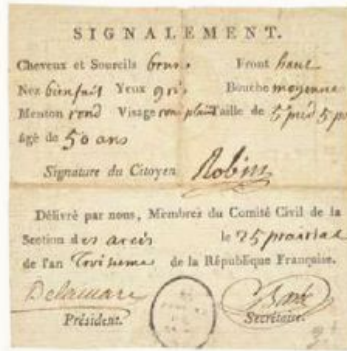 SIGNALEMENT.
Cheveux et Sourcils bruns Front haut
Nez bienfait Yeux gris Bouche moyenne
Menton rond Visage rond plain Taille de 5 pied 5 po
âgé de 50 ans
Signature du Citoyen Robin
Délivré par nous, Membres du Comité Civil de la
Section des arcis le 25 prairial
de l'an Troisieme de la République Française.
Delamare
Président. Secrétaire.